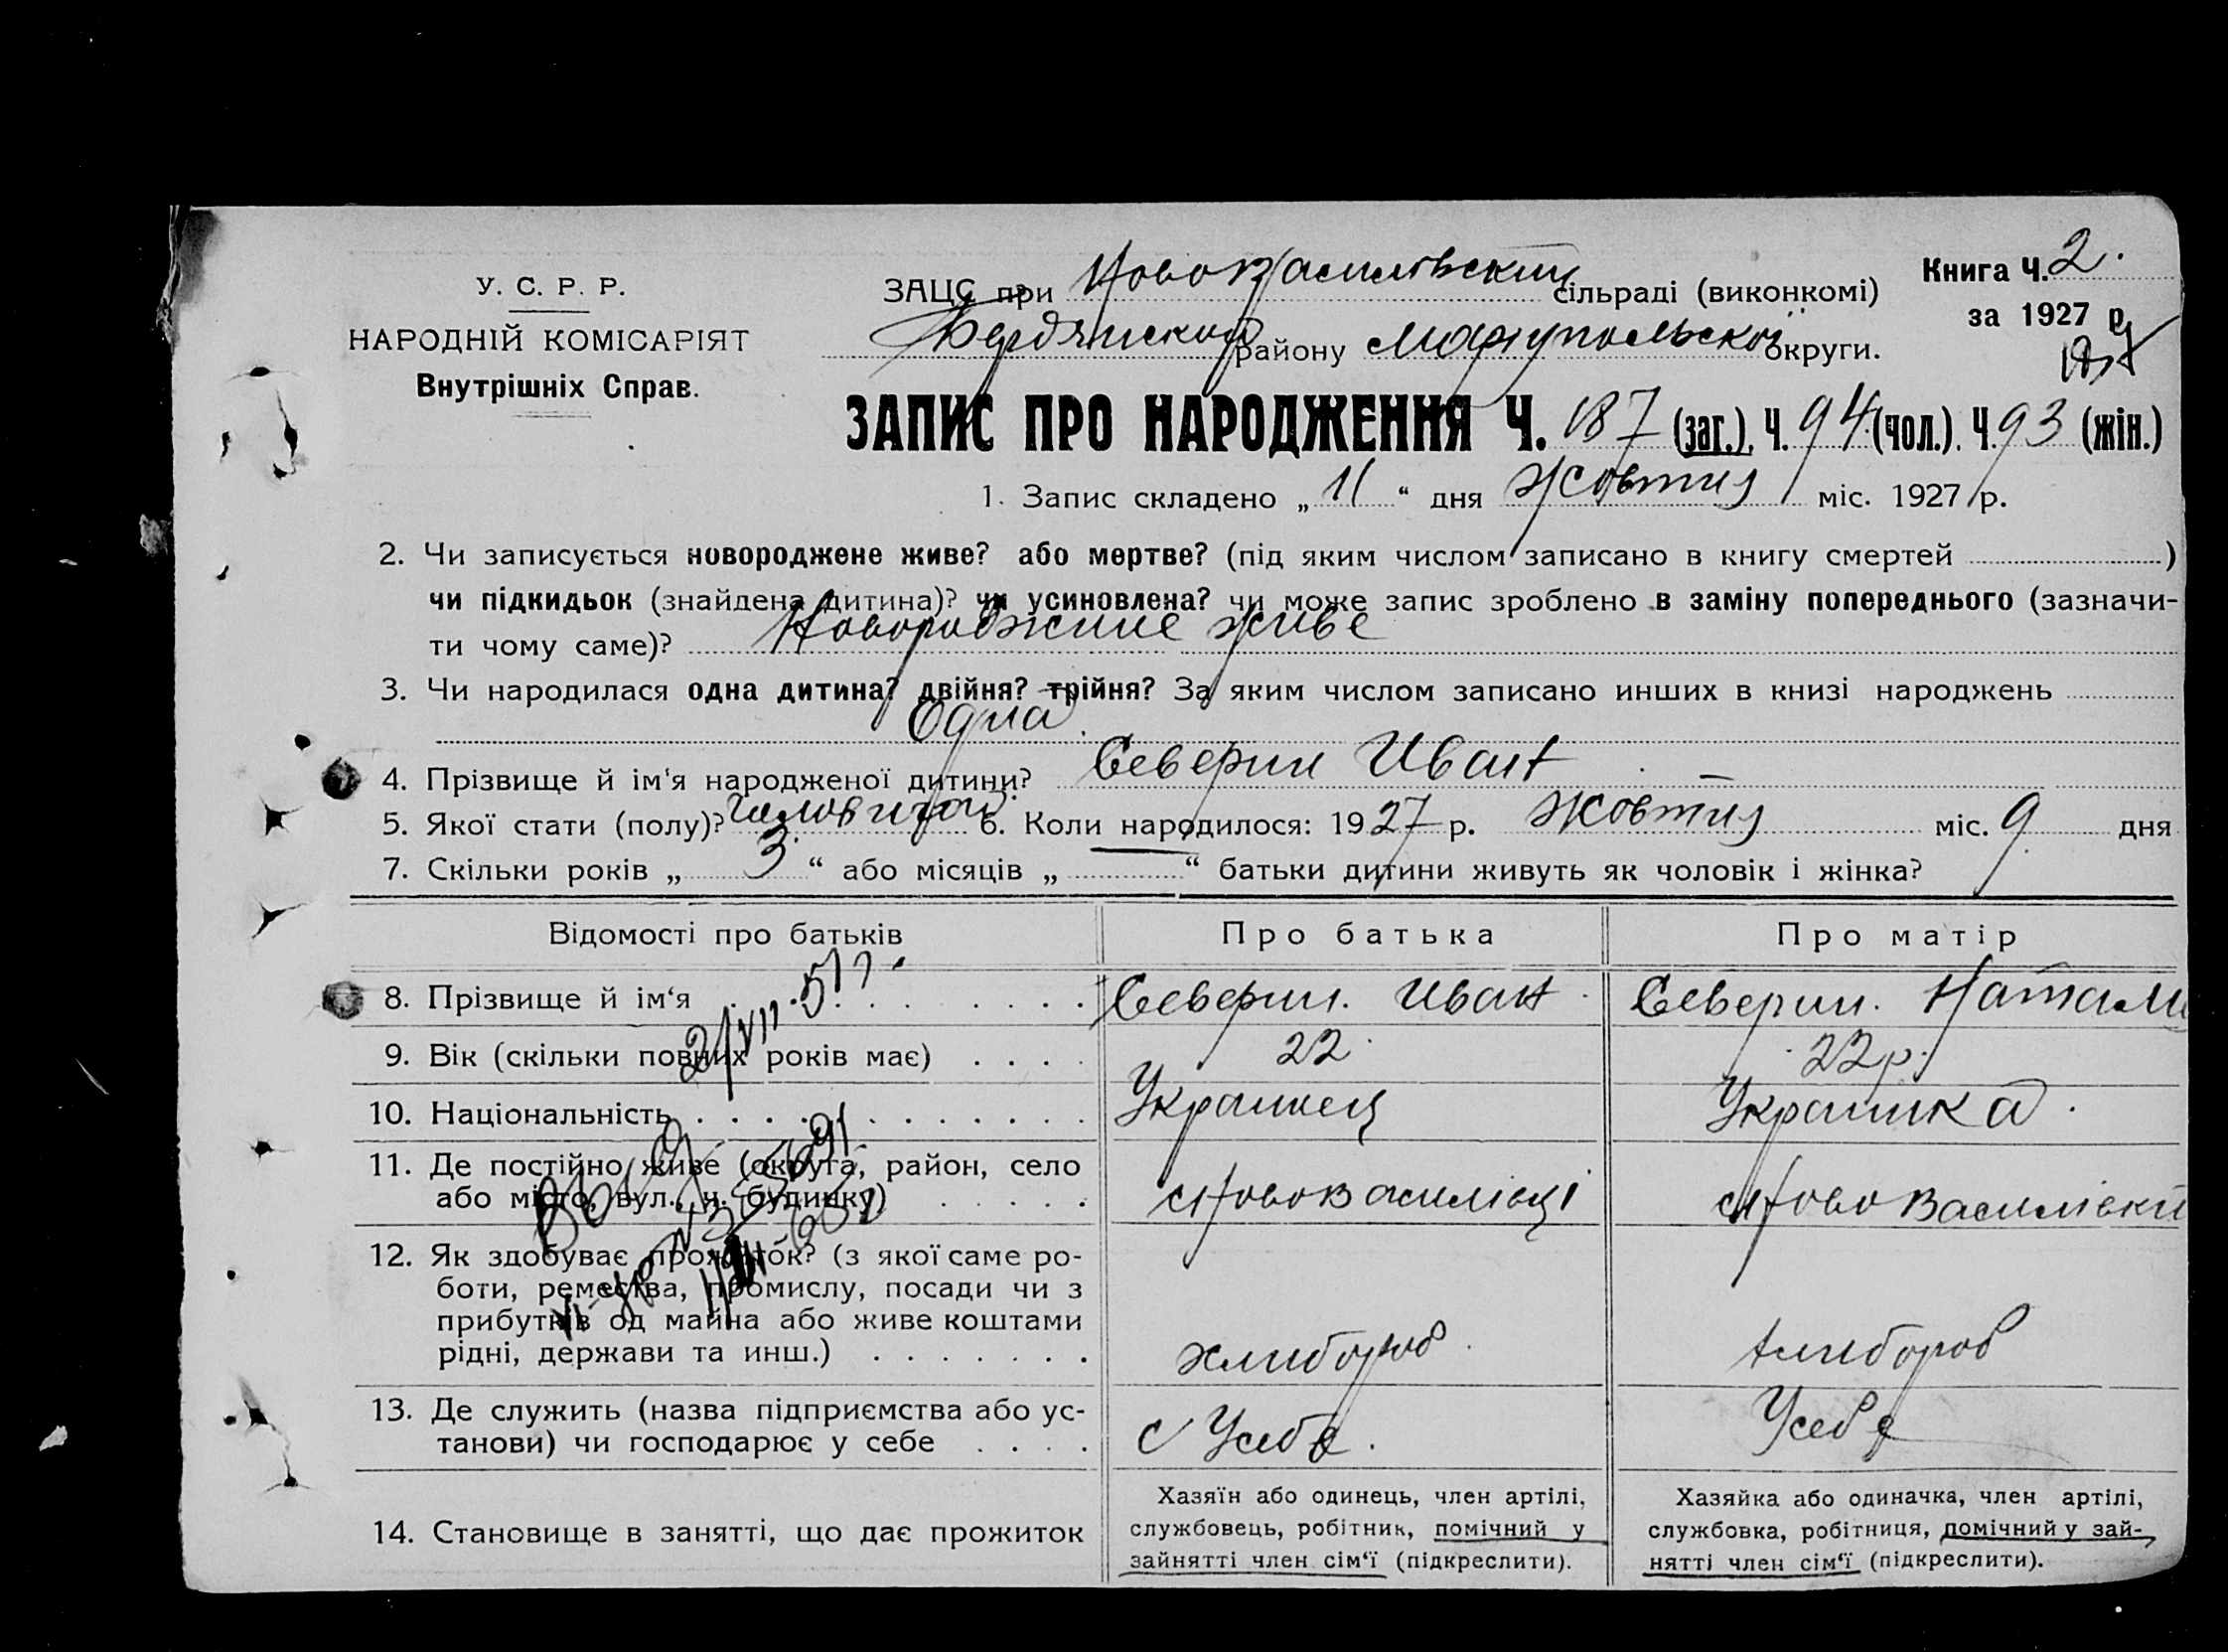 У. С. Р. Р.
НАРОДНІЙ КОМІСАРІЯТ
Внутрішніх Справ.
ЗАЦС при Нововасилівський сільраді (виконкомі)
Книга Ч. 2.
за 1927 р.
Бердянского району Маріупольскої округи.
ЗАПИС ПРО НАРОДЖЕННЯ Ч. 187 (заг.), Ч. 94 (чол.). Ч. 93 (жін.)
1. Запис складено „ 11 “ дня Жовтня міс. 1927 р.
2. Чи записується новороджене живе? або мертве? (під яким числом записано в книгу смертей )
чи підкидьок (знайдена дитина)? чи усиновлена? чи може запис зроблено в заміну попереднього (зазначи-
ти чому саме)? Новорожине живе
3. Чи народилася одна дитина? двійня? трійня? За яким числом записано инших в книзі народжень
Одна
4. Прізвище й ім'я народженої дитини? Северин Иван
5. Якої стати (полу)? 6. Коли народилося: 1927 р. Жовтня міс. 9 дня
7. Скільки років „ 3 “ або місяців „ “ батьки дитини живуть як чоловік і жінка?
Відомості про батьків Про батька Про матір
8. Прізвище й ім‘я Северин. Иван Северин.
9. Вік (скільки повних років має) 22 22 р.
10. Національність Украинец Украинка
11. Де постійно живе (округа, район, село
або місто, вул., ч. будинку) Нововасилівці Нововасилівки
12. Як здобуває прожиток? (з якої саме ро-
боти, ремества, промислу, посади чи з
прибутків од майна або живе коштами
рідні, держави та инш.) хлибороб хлибороб
13. Де служить (назва підприємства або ус-
танови) чи господарює у себе Усебе Усебе
14. Становище в занятті, що дає прожиток
Хазяїн або одинець, член артілі,
службовець, робітник, помічний у
зайнятті член сім‘ї (підкреслити).
Хазяйка або одиначка, член артілі,
службовка, робітниця, помічний у зай-
нятті член сім‘ї (підкреслити).